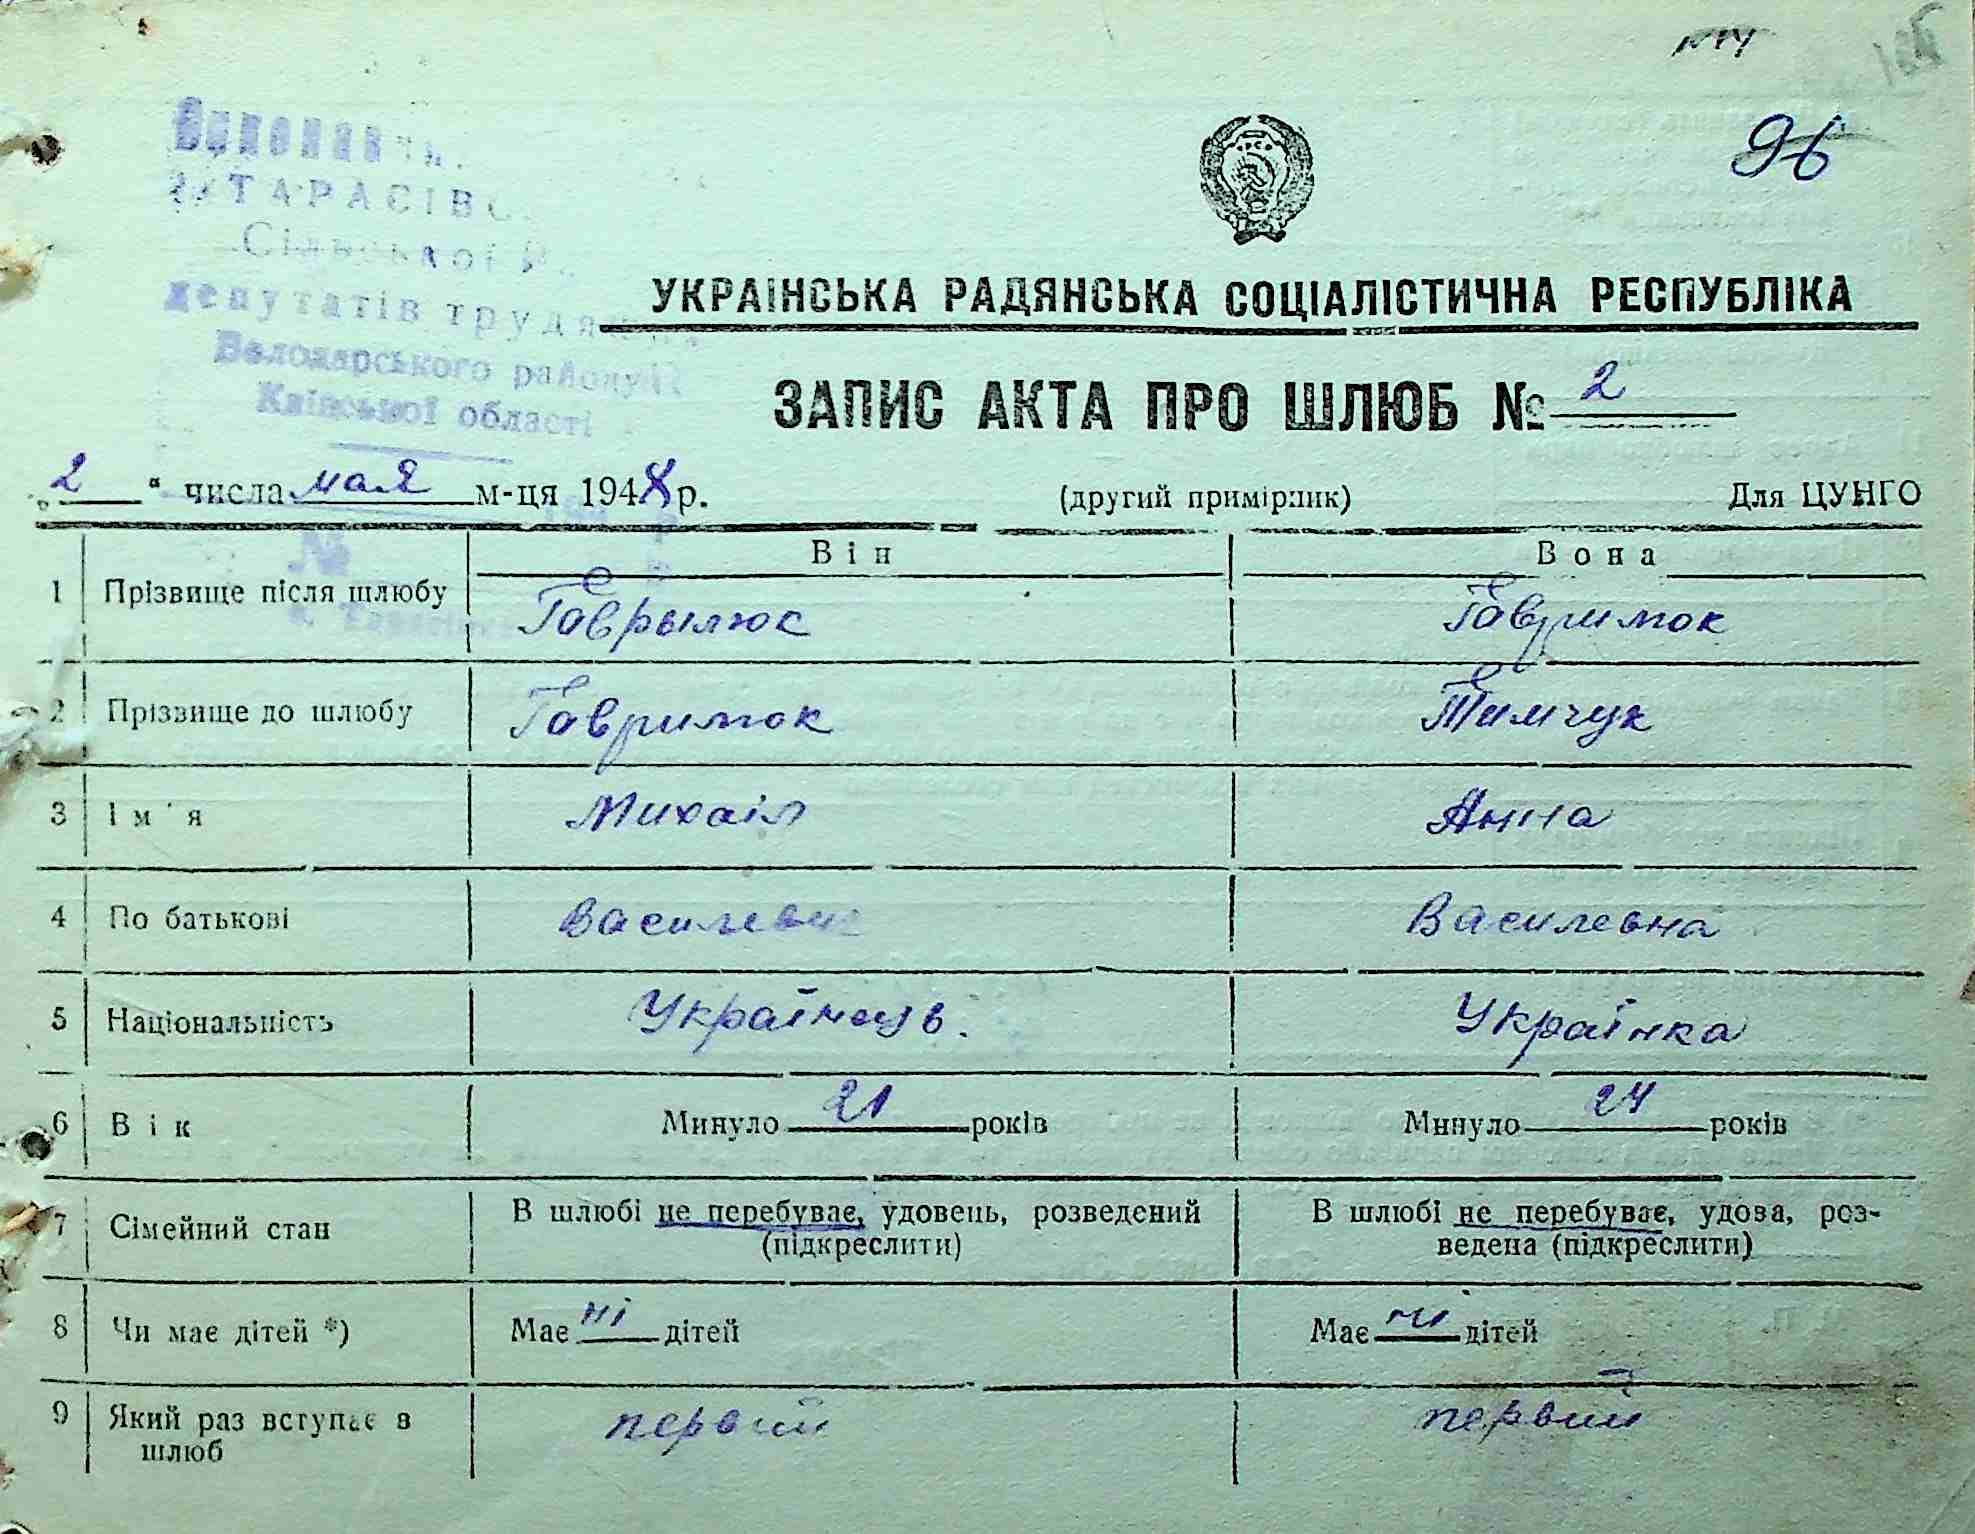 96
ТАРАСІВС
Сільської
депутатів трудя
Володарського району
Київської області
УКРАЇНСЬКА РАДЯНСЬКА СОЦІАЛІСТИЧНА РЕСПУБЛІКА
ЗАПИС АКТА ПРО ШЛЮБ № 2
„2“ числа мая м-ця 1948 р. (другий примірник) Для ЦУНГО
Він Вона
1 Прізвище після шлюбу Гаврылюк Гаврилюк
2 Прізвище до шлюбу Гаврилюк Тимчук
3 Ім'я Михаіл Анна
4 По батькові Василевич Василевна
5 Національність Українець. Українка
6 Вік Минуло 21 років Минуло 24 років
7 Сімейний стан В шлюбі не перебуває, удовець, розведений (підкреслити) В шлюбі не перебуває, удова, роз-
ведена (підкреслити)
8 Чи має дітей *) Має ні дітей Має ні дітей
9 Який раз вступає в
шлюб первий первий